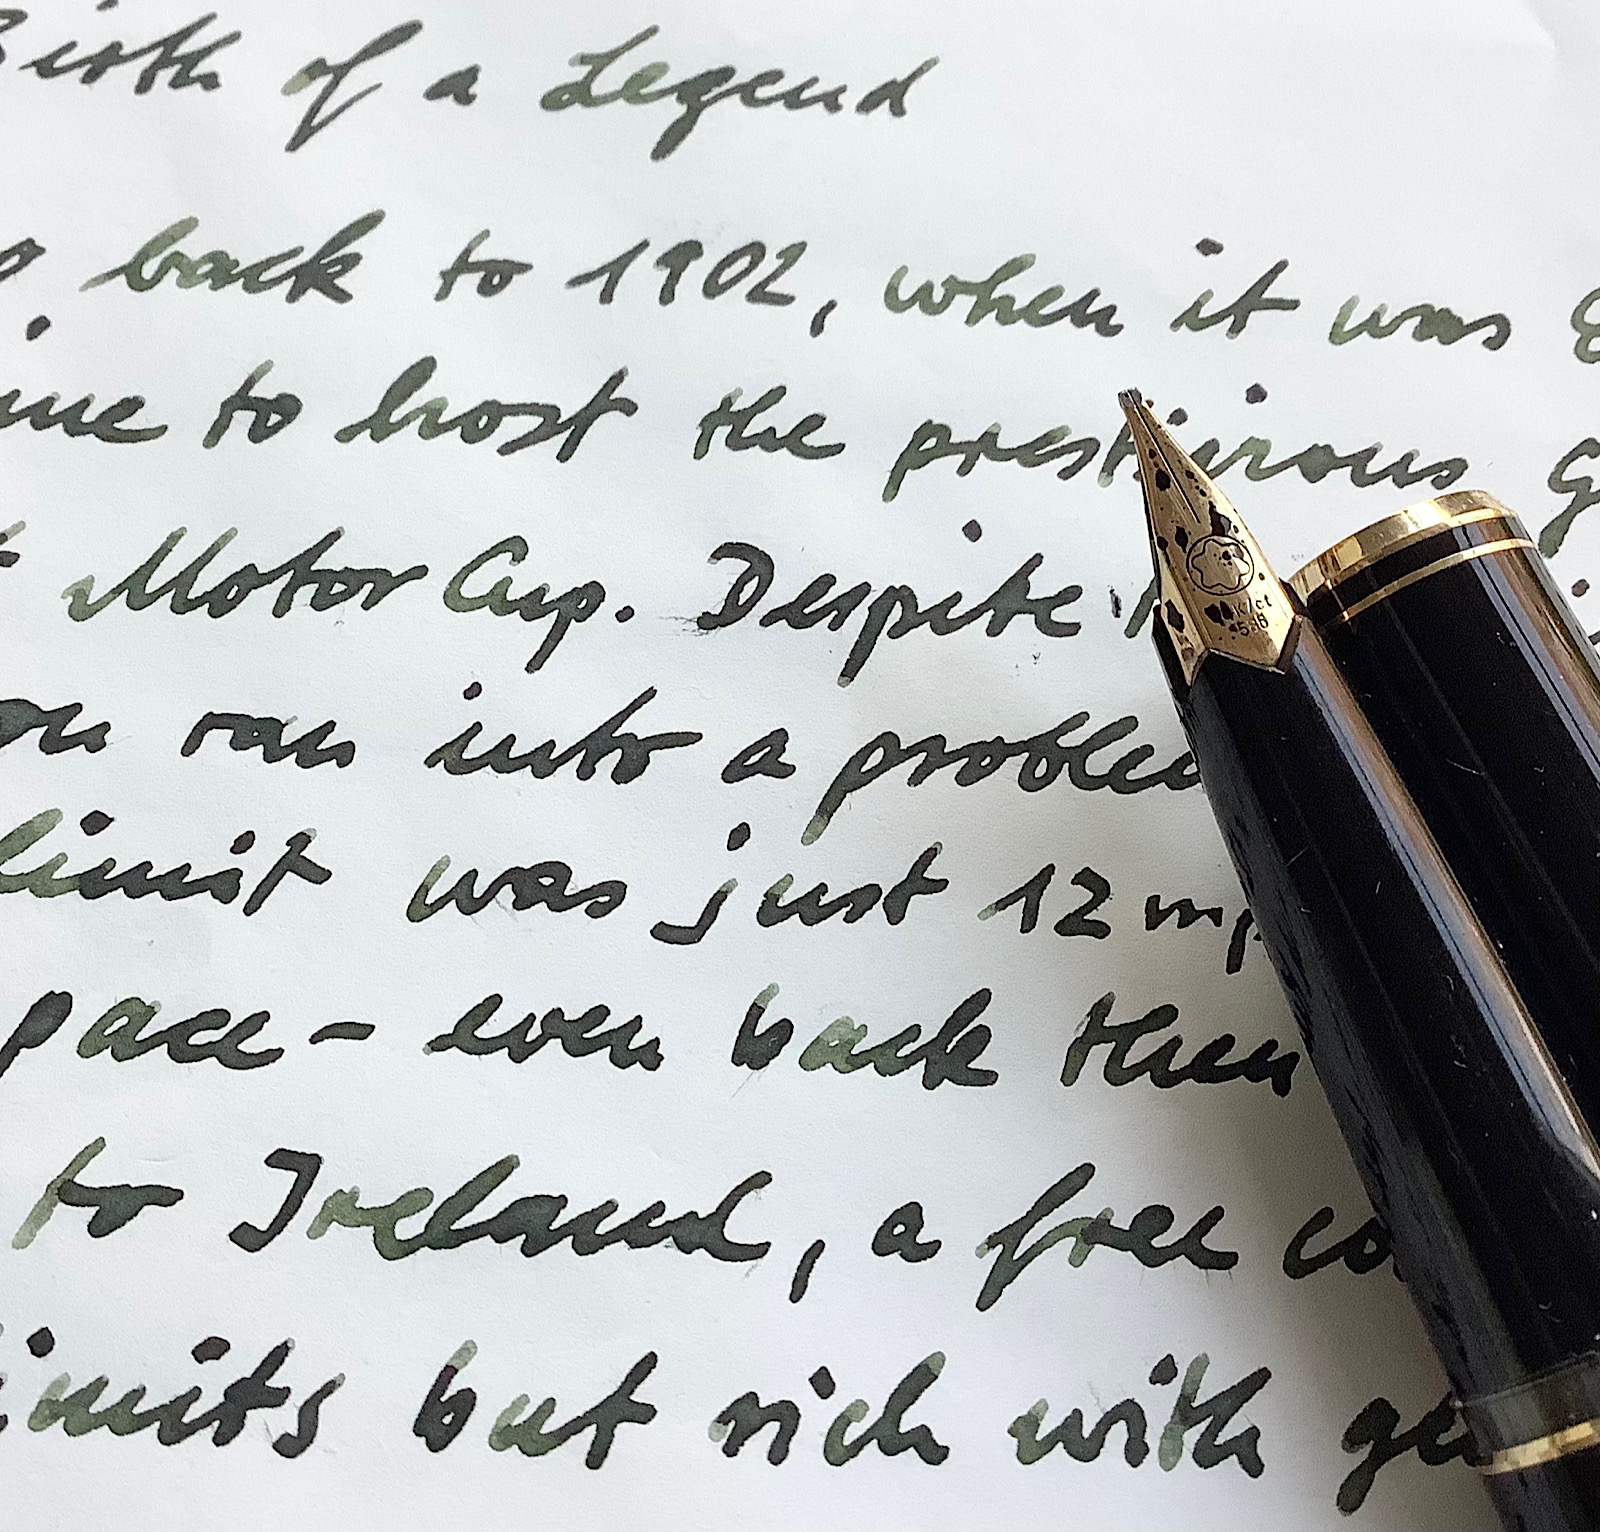 Birth of a Legend
back to 1902, when it was
to host the prestigious
Motor Cup. Despite
ran into a problem
limit was just 12 mp
pace - even back then
to Ireland, a free
limits but rich with
14ct
585